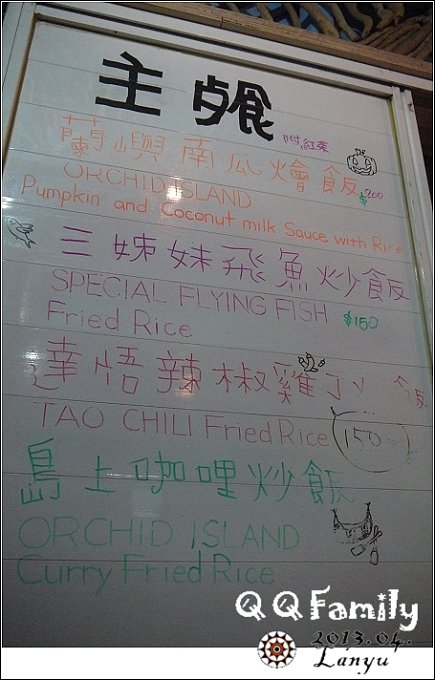 主餐
附紅茶
蘭嶼南瓜燴飯
$200
ORCHID ISLAND
Pumpkin and Coconut milk Sauce with Rice
三姊妹飛魚炒飯
SPECIAL FLYING FISH
Fried Rice $150
達悟辣椒雞丁飯
TAO CHILI Fried Rice 150
島上咖哩炒飯
ORCHID ISLAND
Curry Fried Rice
QQ Family
2013.04.
Lanyu